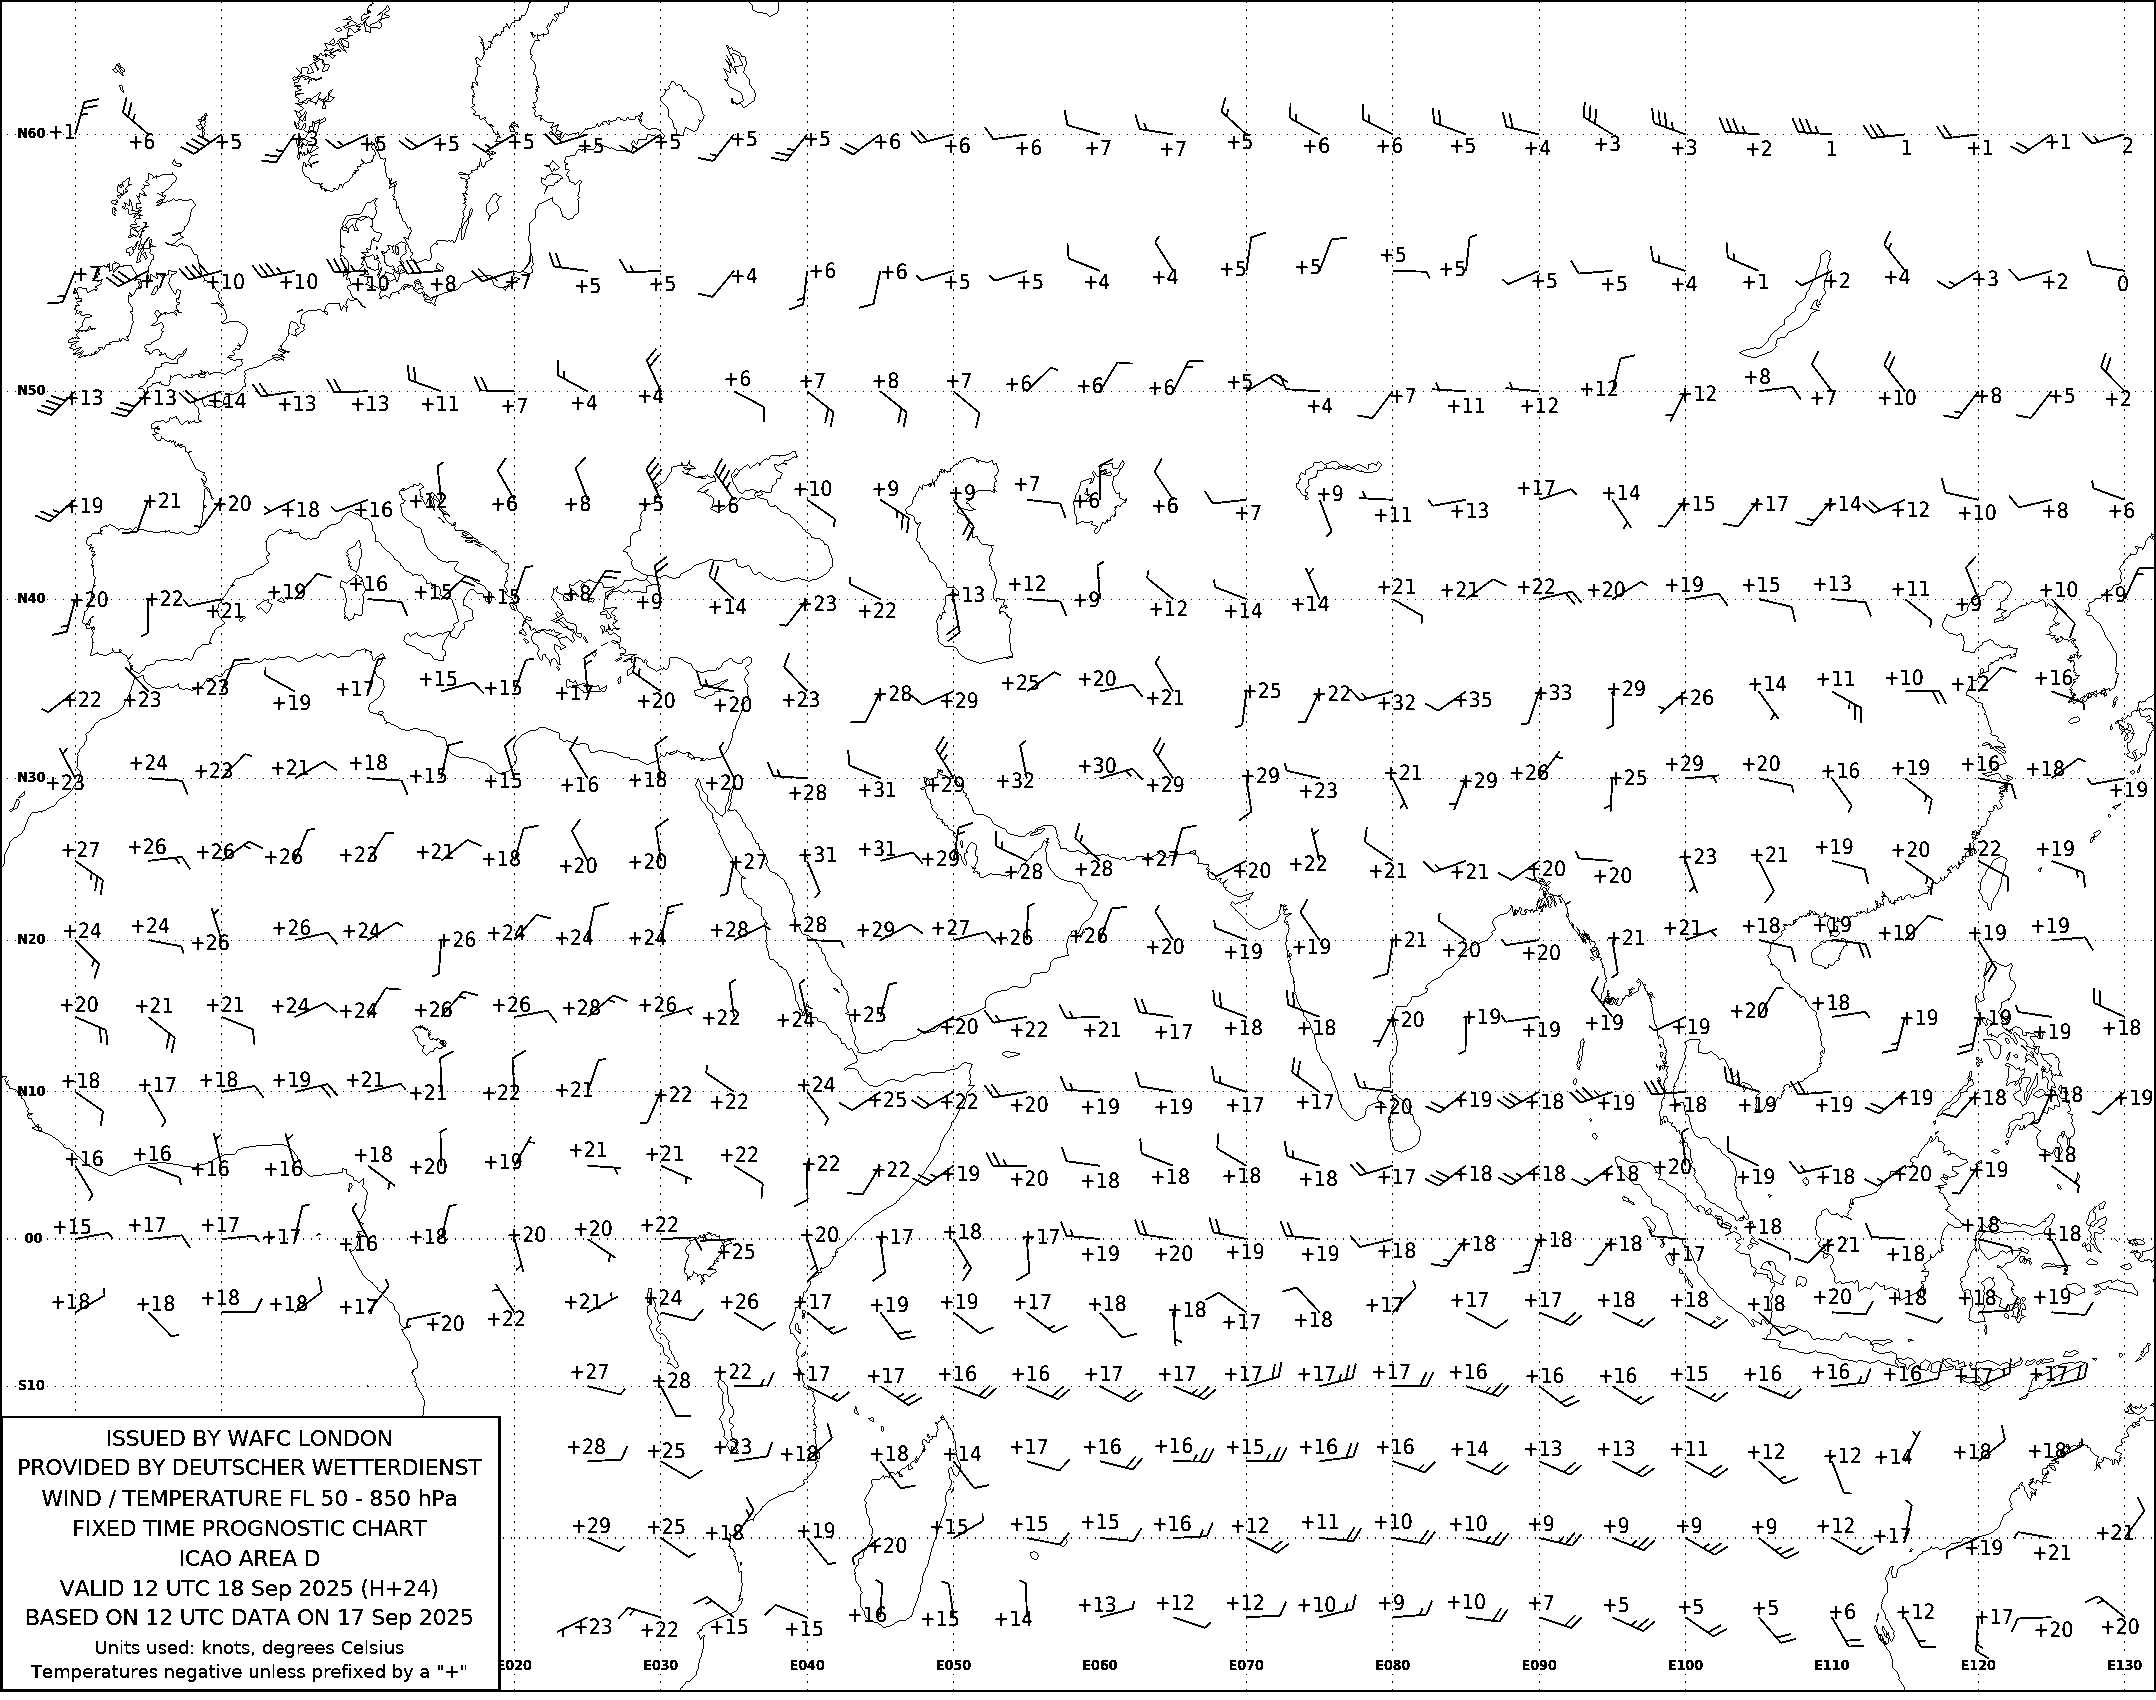 N60 +1 +6 +5 +3 +5 +5 +5 +5 +5 +5 +5 +6 +6 +6 +7 +7 +5 +6 +6 +5 +4 +3 +3 +2 1 1 +1 +1 2
+7 +7 +10 +10 +10 +8 +7 +5 +5 +4 +6 +6 +5 +5 +4 +4 +5 +5 +5 +5 +5 +5 +4 +1 +2 +4 +3 +2 0
N50 +13 +13 +14 +13 +13 +11 +7 +4 +4 +6 +7 +8 +7 +6 +6 +6 +5 +4 +7 +11 +12 +12 +12 +8 +7 +10 +8 +5 +2
+19 +21 +20 +18 +16 +12 +6 +8 +5 +6 +10 +9 +9 +7 +6 +6 +7 +9 +11 +13 +17 +14 +15 +17 +14 +12 +10 +8 +6
N40 +20 +22 +21 +19 +16 +15 +15 +8 +9 +14 +23 +22 +13 +12 +9 +12 +14 +14 +21 +21 +22 +20 +19 +15 +13 +11 +9 +10 +9
+22 +23 +23 +19 +17 +15 +15 +17 +20 +20 +23 +28 +29 +25 +20 +21 +25 +22 +32 +35 +33 +29 +26 +14 +11 +10 +12 +16
N30 +23 +24 +23 +21 +18 +15 +15 +16 +18 +20 +28 +31 +29 +32 +30 +29 +29 +23 +21 +29 +26 +25 +29 +20 +16 +19 +16 +18 +19
+27 +26 +26 +26 +23 +21 +18 +20 +20 +27 +31 +31 +29 +28 +28 +27 +20 +22 +21 +21 +20 +20 +23 +21 +19 +20 +22 +19
N20 +24 +24 +26 +26 +24 +26 +24 +24 +24 +28 +28 +29 +27 +26 +26 +20 +19 +19 +21 +20 +20 +21 +21 +18 +19 +19 +19 +19
+20 +21 +21 +24 +24 +26 +26 +28 +26 +22 +24 +25 +20 +22 +21 +17 +18 +18 +20 +19 +19 +19 +19 +20 +18 +19 +19 +19 +18
N10 +18 +17 +18 +19 +21 +21 +22 +21 +22 +22 +24 +25 +22 +20 +19 +19 +17 +17 +20 +19 +18 +19 +18 +19 +19 +19 +18 +18 +19
+16 +16 +16 +16 +18 +20 +19 +21 +21 +22 +22 +22 +19 +20 +18 +18 +18 +18 +17 +18 +18 +18 +20 +19 +18 +20 +19 +18
00 +15 +17 +17 +17 +16 +18 +20 +20 +22 +25 +20 +17 +18 +17 +19 +20 +19 +19 +18 +18 +18 +18 +17 +18 +21 +18 +18 +18
+18 +18 +18 +18 +17 +20 +22 +21 +24 +26 +17 +19 +19 +17 +18 +18 +17 +18 +17 +17 +17 +18 +18 +18 +20 +18 +18 +19
S10 +27 +28 +22 +17 +17 +16 +16 +17 +17 +17 +17 +17 +16 +16 +16 +15 +16 +16 +16 +17 +17
+28 +25 +23 +18 +18 +14 +17 +16 +16 +15 +16 +16 +14 +13 +13 +11 +12 +12 +14 +18 +18
+29 +25 +18 +19 +20 +15 +15 +15 +16 +12 +11 +10 +10 +9 +9 +9 +9 +12 +17 +19 +21 +21
+23 +22 +15 +15 +16 +15 +14 +13 +12 +12 +10 +9 +10 +7 +5 +5 +5 +6 +12 +17 +20 +20
E020 E030 E040 E050 E060 E070 E080 E090 E100 E110 E120 E130
ISSUED BY WAFC LONDON
PROVIDED BY DEUTSCHER WETTERDIENST
WIND / TEMPERATURE FL 50 - 850 hPa
FIXED TIME PROGNOSTIC CHART
ICAO AREA D
VALID 12 UTC 18 Sep 2025 (H+24)
BASED ON 12 UTC DATA ON 17 Sep 2025
Units used: knots, degrees Celsius
Temperatures negative unless prefixed by a "+"